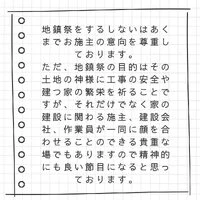 地鎮祭をするしないはあく
までお施主の意向を尊重し
ております。
ただ、地鎮祭の目的はその
土地の神様に工事の安全や
建つ家の繁栄を祈ることで
すが、それだけでなく家の
建設に関わる施主、建設会
社、作業員が一同に顔を合
わせることのできる貴重な
場でもありますので精神的
にも良い節目になると思っ
ております。